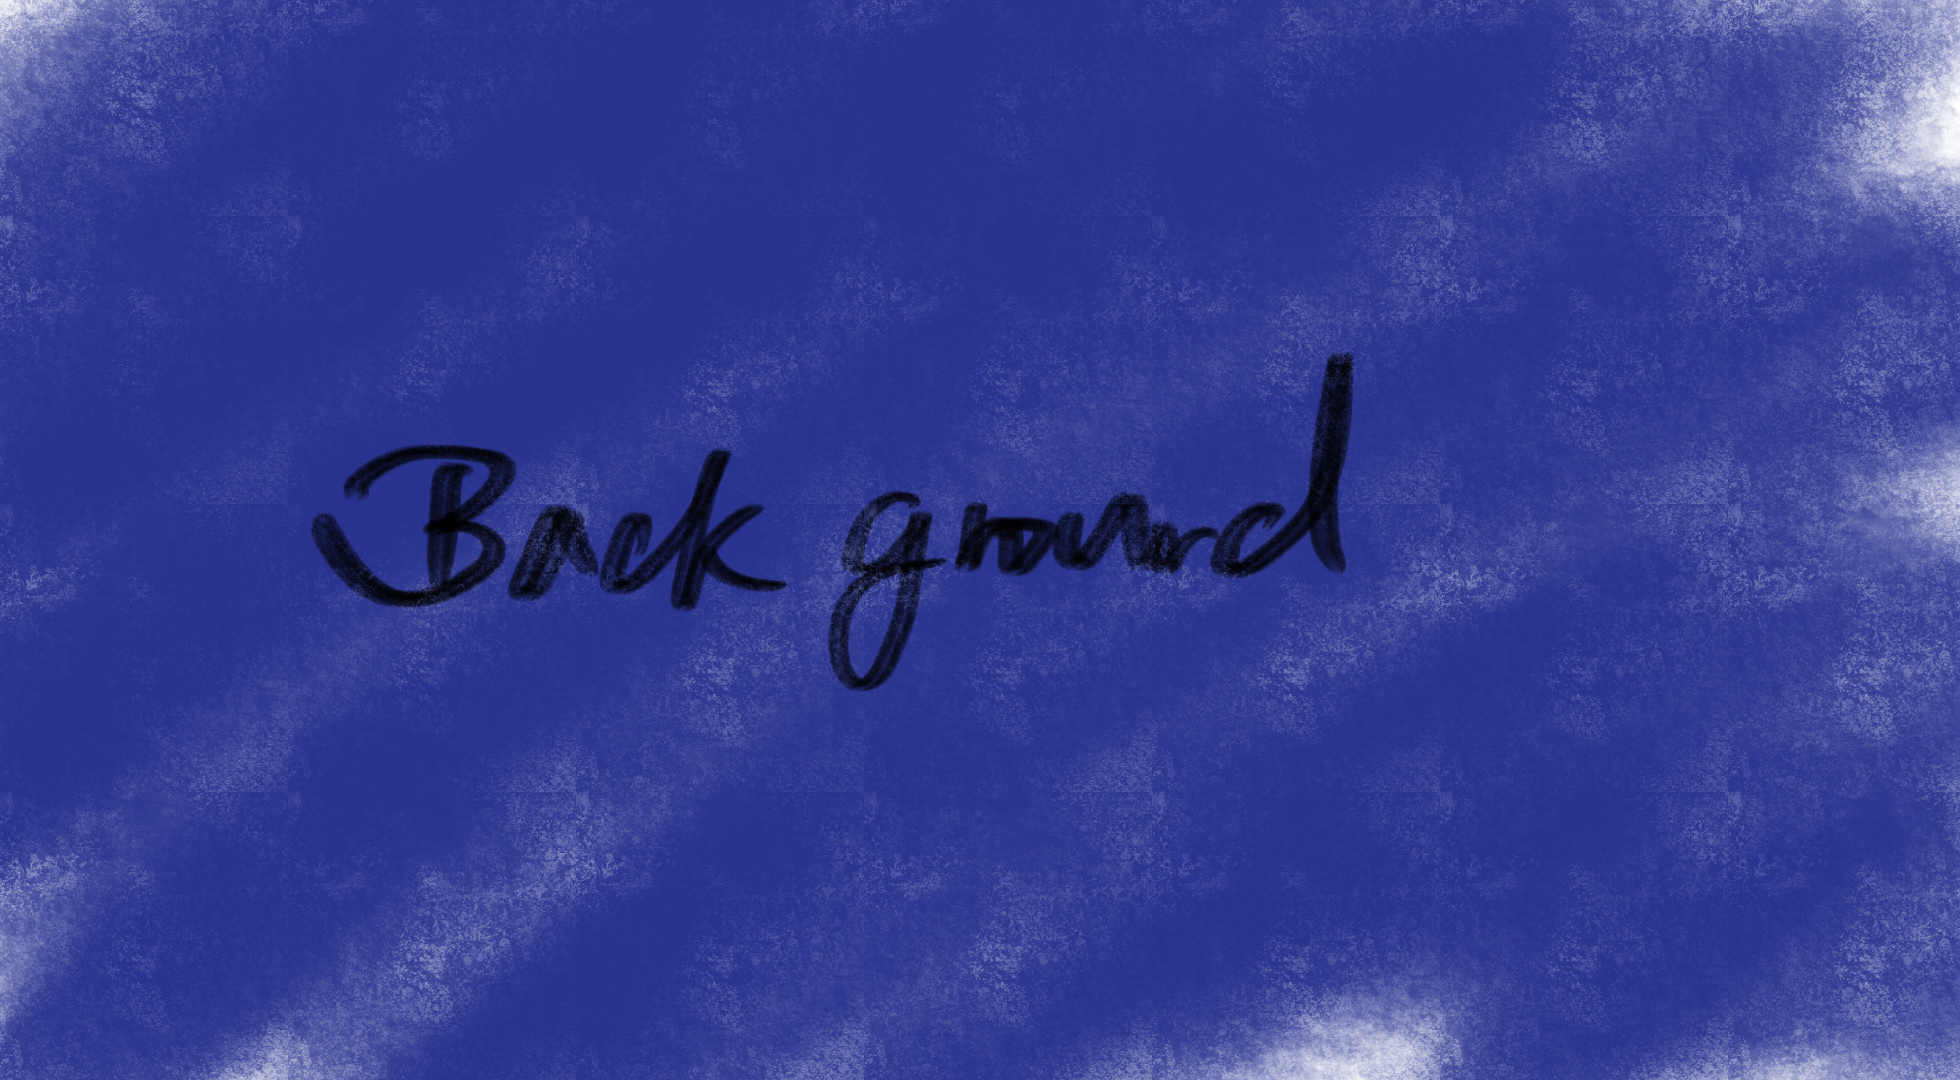 Back ground